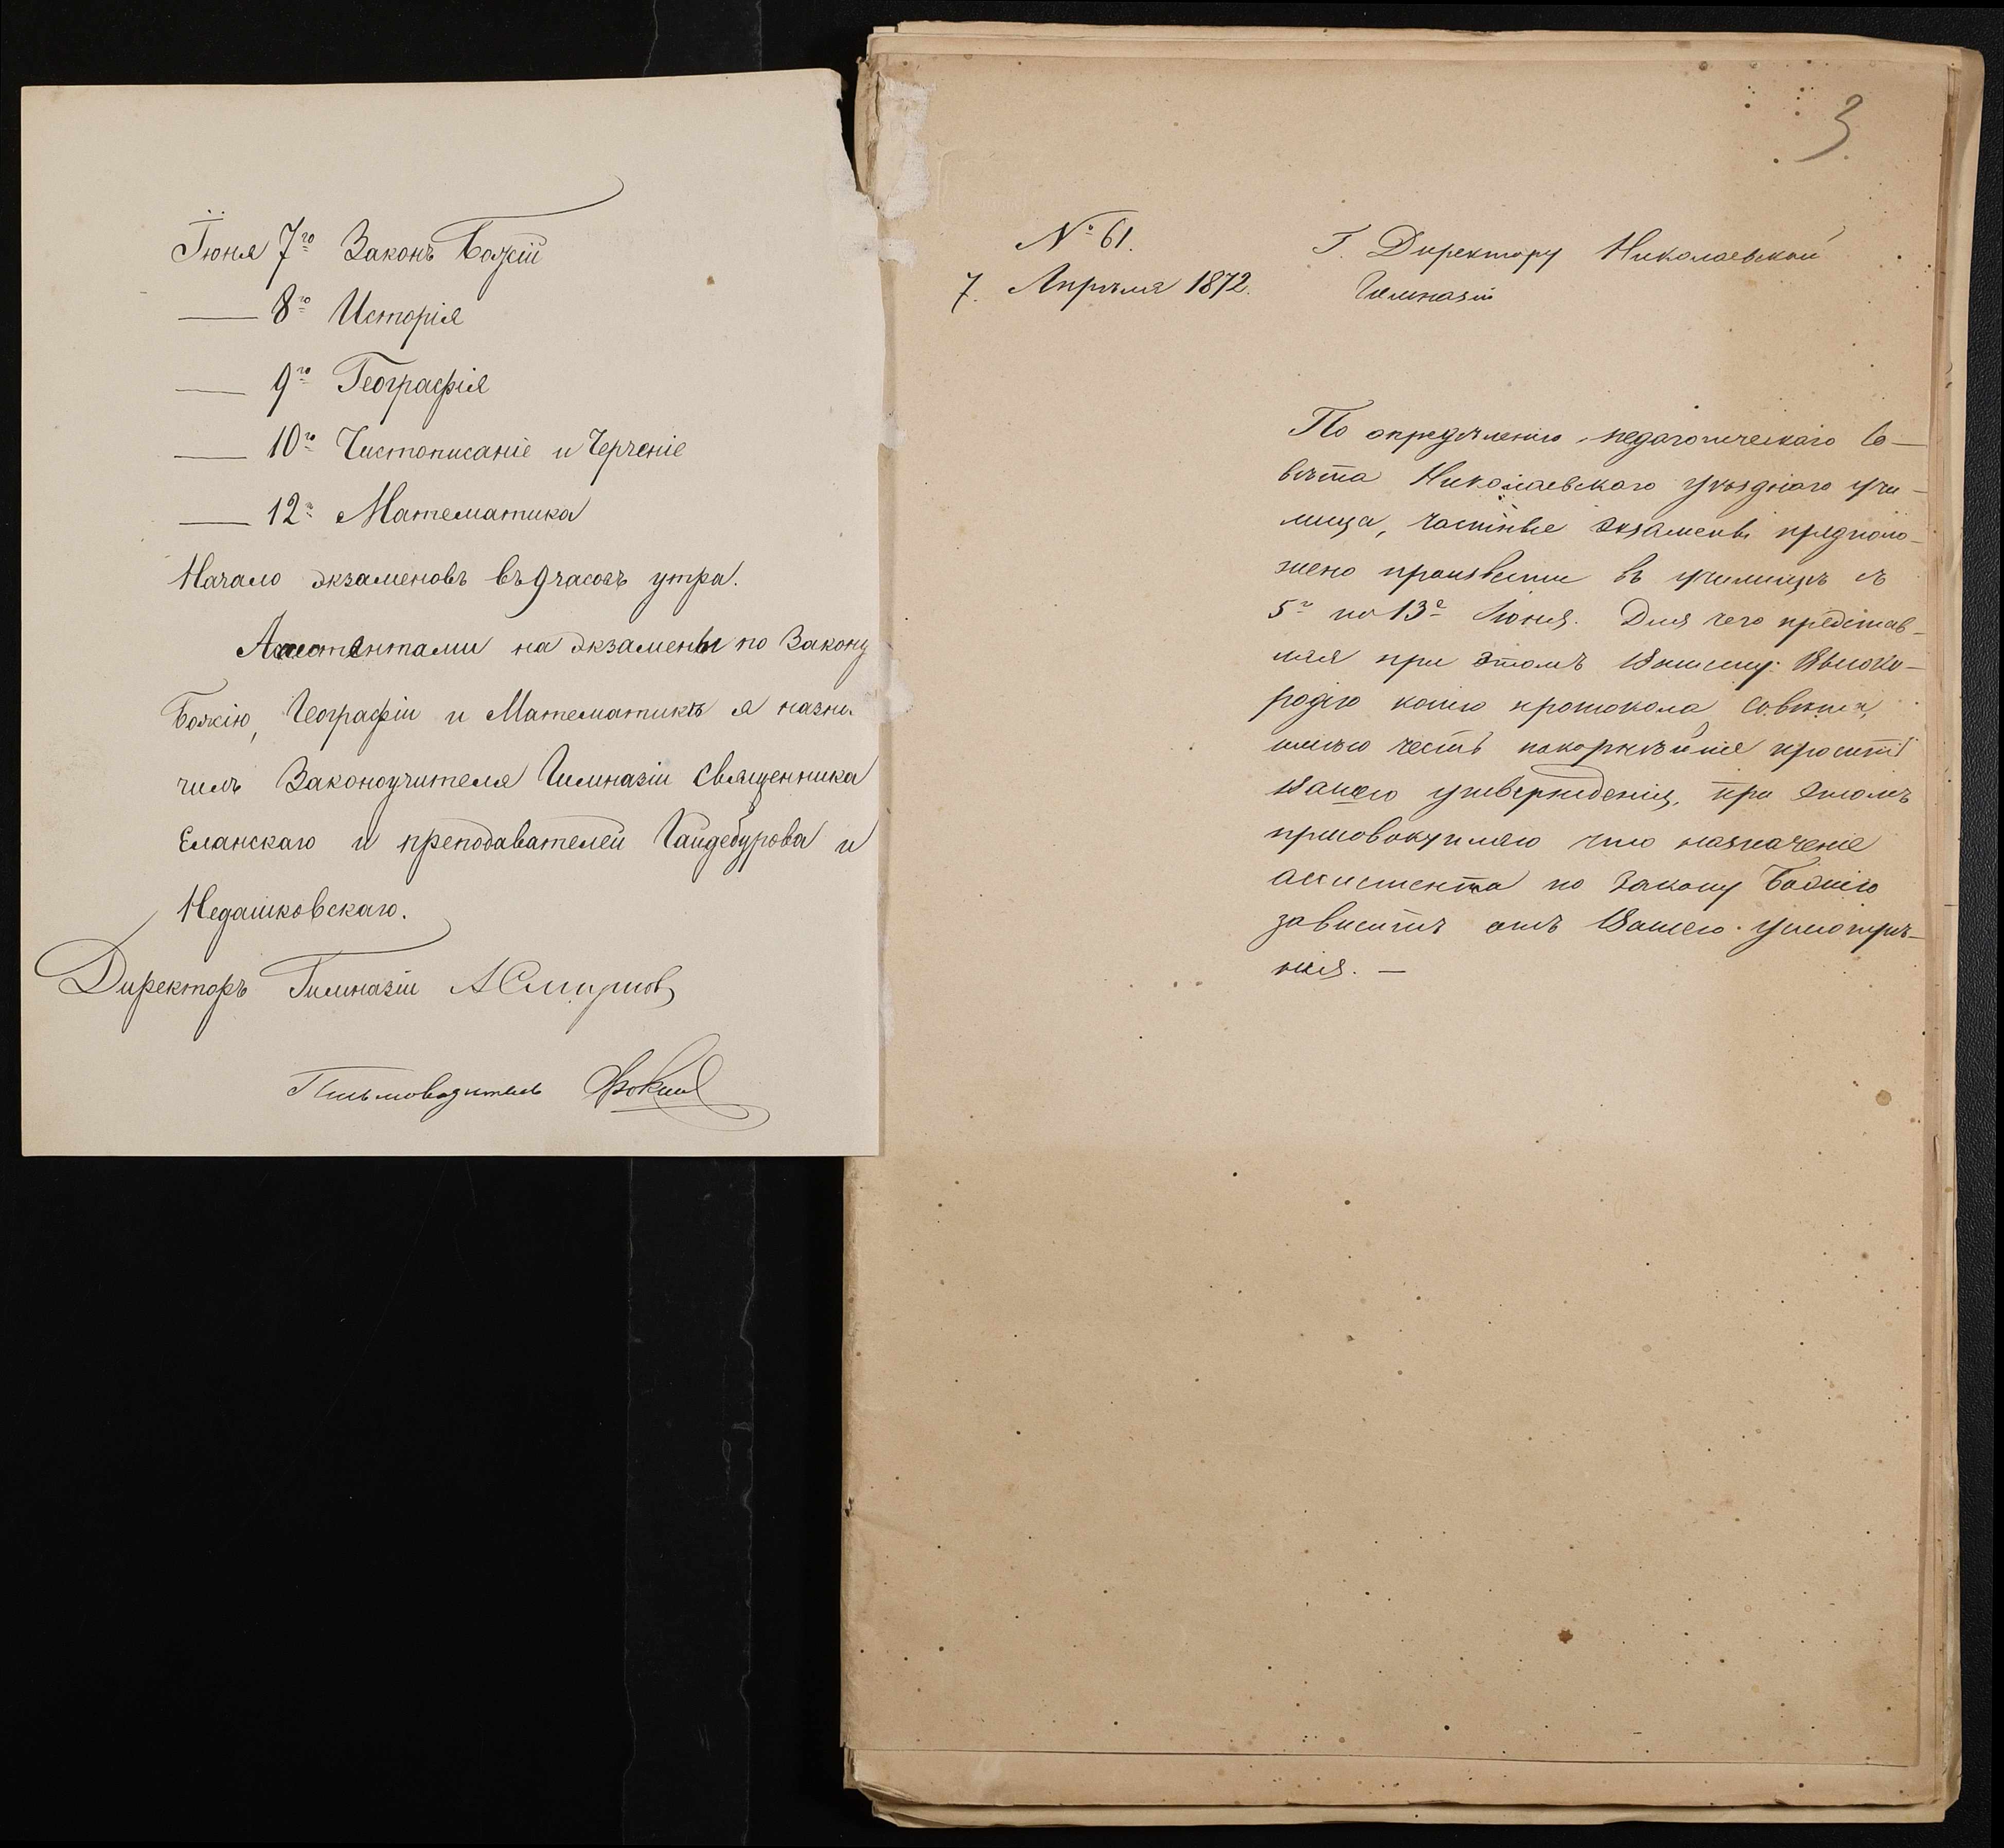 Іюня 7го Законъ Божій
— 8го Исторія
— 9го Географія
— 10го Чистописаніе и Черченіе
— 12го Математика
Начало экзаменовъ въ 9 часовъ утра.
Ассистентами на экзамены по Закону
Божію, Географіи и Математикѣ я назна-
чилъ Законоучителя Гимназіи Священника
Еланскаго и преподавателей Гайдебурова и
Недашковскаго.
Директоръ Гимназіи А Смирновъ
Письмоводитель Фокинъ
3
№ 61.
7. Апрѣля 1872.
Г. Директору Николаевской
Гимназіи
По опредѣленію педагогическаго Со-
вѣта Николаевскаго уѣзднаго учи-
лища, частные экзамены предполо-
жено произвести въ училищѣ съ
5го по 13е Іюня. Для чего представ-
ляя при этомъ Вашему Высоко-
родію копію протокола Совѣта,
имѣю честь покорнѣйше просить
Вашего утвержденія, при этомъ
присовокупляю что назначеніе
ассистента по Закону Божію
зависитъ отъ Вашего усмотрѣ-
нія. —